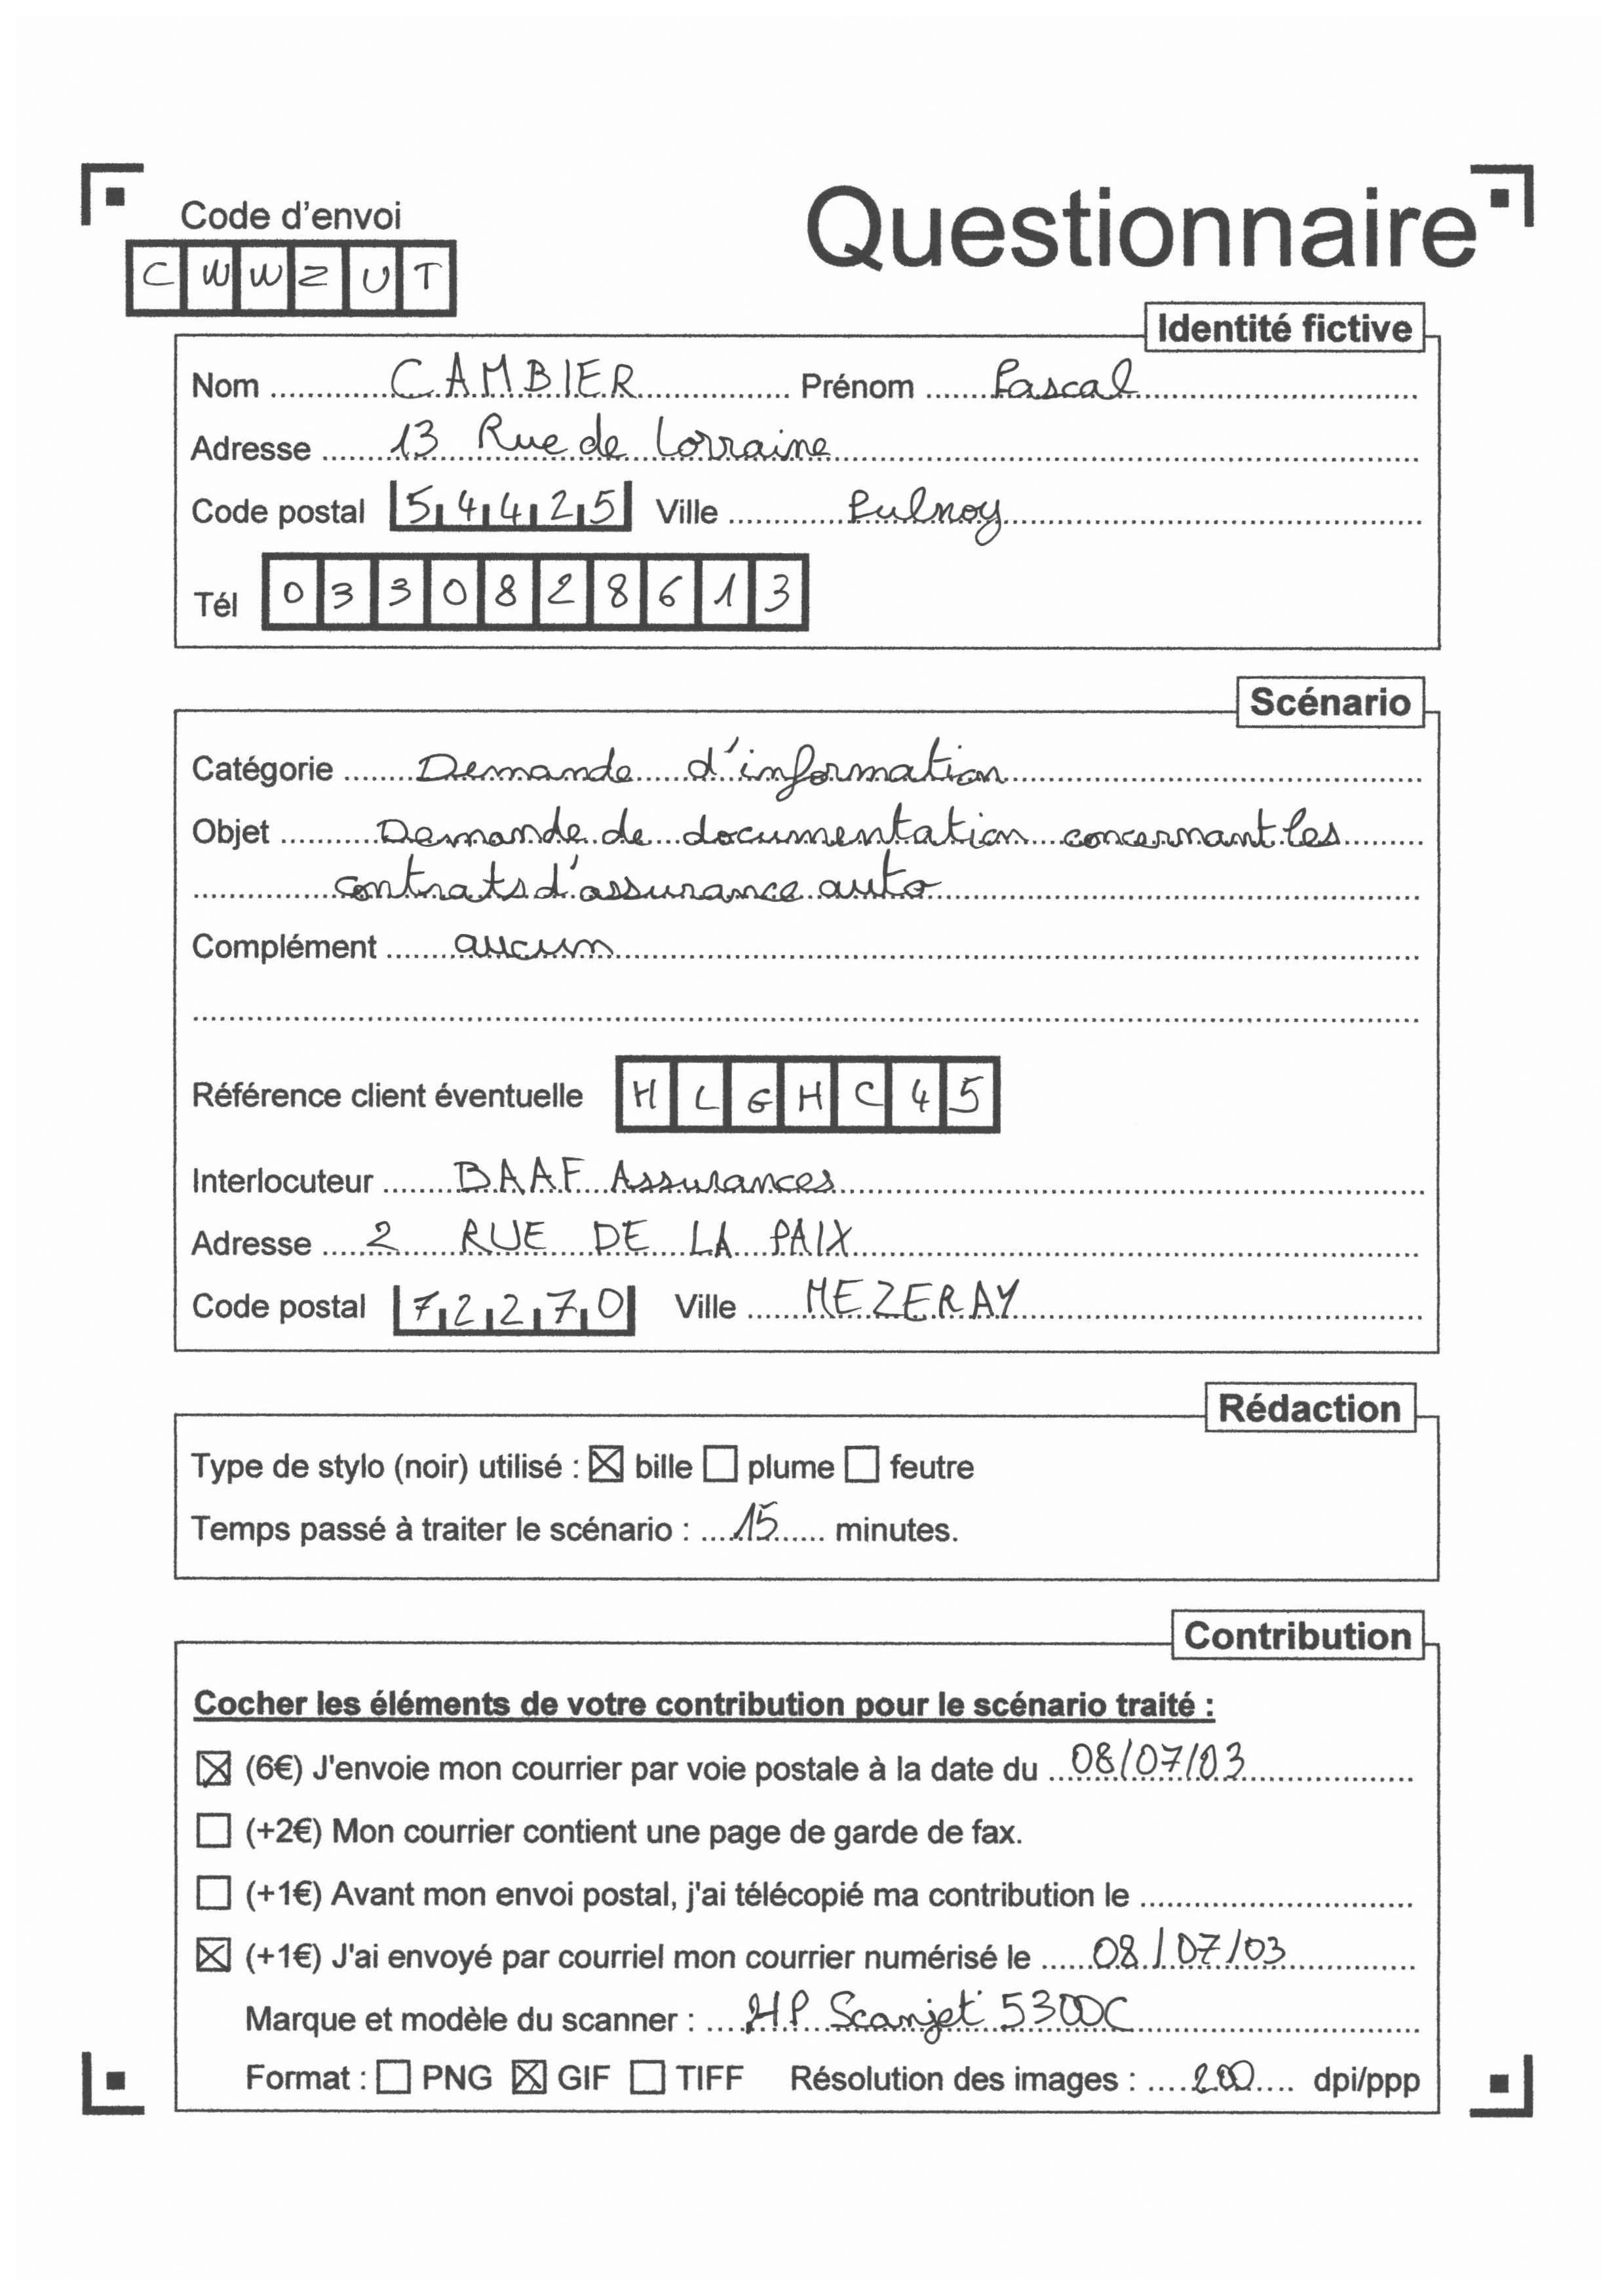 Code d'envoi
Questionnaire
C W W Z U T
Identité fictive
Nom CAMBIER Prénom Pascal
Adresse 13 Rue de Lorraine
Code postal 54425 Ville Pulnoy
Tél 0330828613
Scénario
Catégorie Demande d'information
Objet Demande de documentation concernant les
contrats d'assurance auto
Complément aucun
Référence client éventuelle HLGHC45
Interlocuteur BAAF Assurances
Adresse 2 RUE DE LA PAIX
Code postal 72270 Ville MEZERAY
Rédaction
Type de stylo (noir) utilisé : ☒ bille ☐ plume ☐ feutre
Temps passé à traiter le scénario : 15 minutes.
Contribution
Cocher les éléments de votre contribution pour le scénario traité :
☒ (6€) J'envoie mon courrier par voie postale à la date du 08/07/03
☐ (+2€) Mon courrier contient une page de garde de fax.
☐ (+1€) Avant mon envoi postal, j'ai télécopié ma contribution le
☒ (+1€) J'ai envoyé par courriel mon courrier numérisé le 08/07/03
Marque et modèle du scanner : HP Scanjet 5300C
Format : ☐ PNG ☒ GIF ☐ TIFF Résolution des images : 200 dpi/ppp